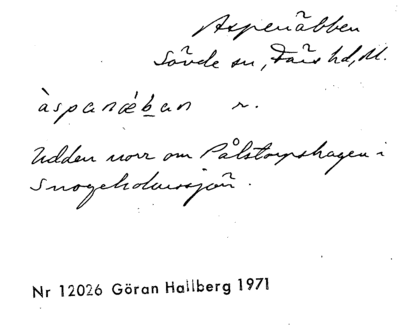 Aspenäbben
Sövde sn, Färs hd, M.
àspanǽban r.
Udden norr om Pålstorpshagen i
Snogeholmssjön.
Nr 12026 Göran Hallberg 1971